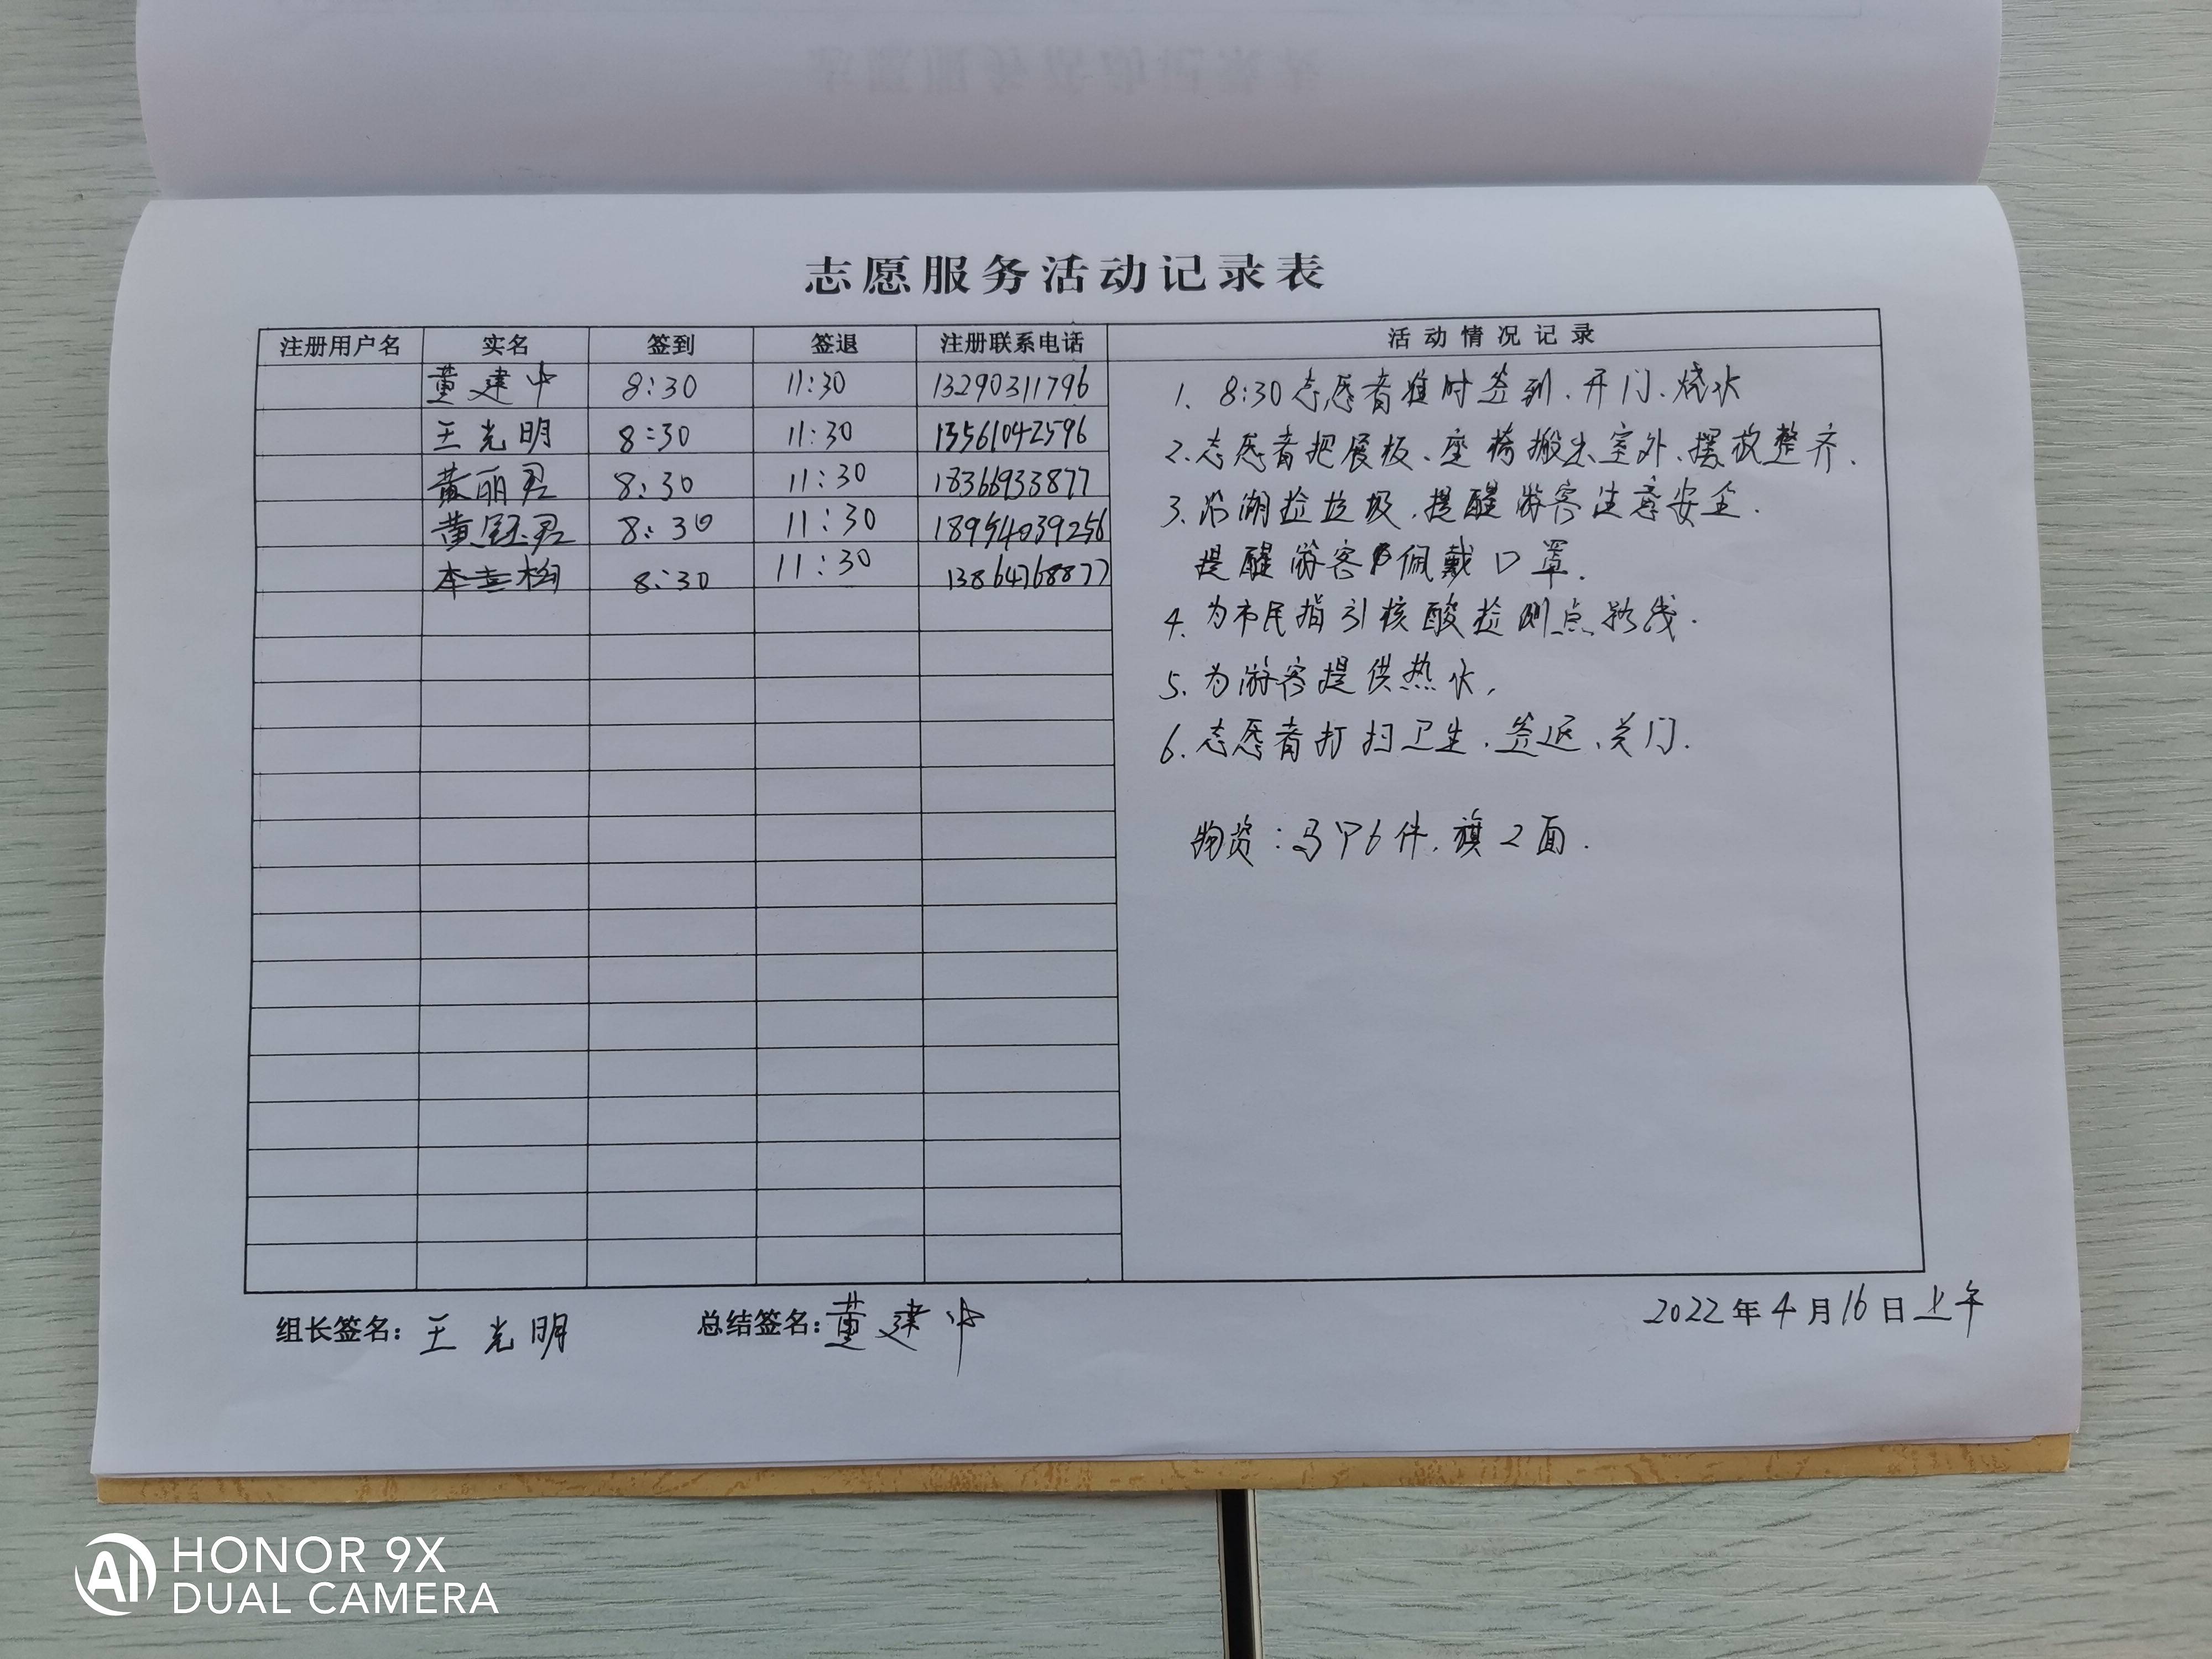 志愿服务活动记录表
注册用户名 实名 签到 签退 注册联系电话 活动情况记录
董建中 8:30 11:30 13290311796
王光明 8:30 11:30 13561042596
黄丽君 8:30 11:30 18366933877
黄 君 8:30 11:30 18954039256
8:30 11:30 13864768877
1. 8:30志愿者准时签到、开门、烧水
2、志愿者把展板、座椅搬出室外、摆放整齐.
3、沿湖捡垃圾，提醒游客注意安全.
提醒游客佩戴口罩.
4、为市民指引核酸检测点路线.
5、为游客提供热水,
6、志愿者打扫卫生、签退、关门.
物资：马甲6件，旗2面.
组长签名：王光明 总结签名：董建中 2022年4月16日上午
AI HONOR 9X
DUAL CAMERA